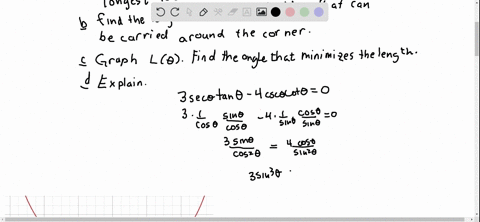 longest
b find the
be carried around the corner.
c Graph L(θ). Find the angle that minimizes the length.
d Explain.
3 secθ tanθ - 4 cscθ cotθ = 0
3 · 1/cosθ sinθ/cosθ - 4 · 1/sinθ cosθ/sinθ = 0
3 sinθ/cos²θ = 4 cosθ/sin²θ
3 sin³θ